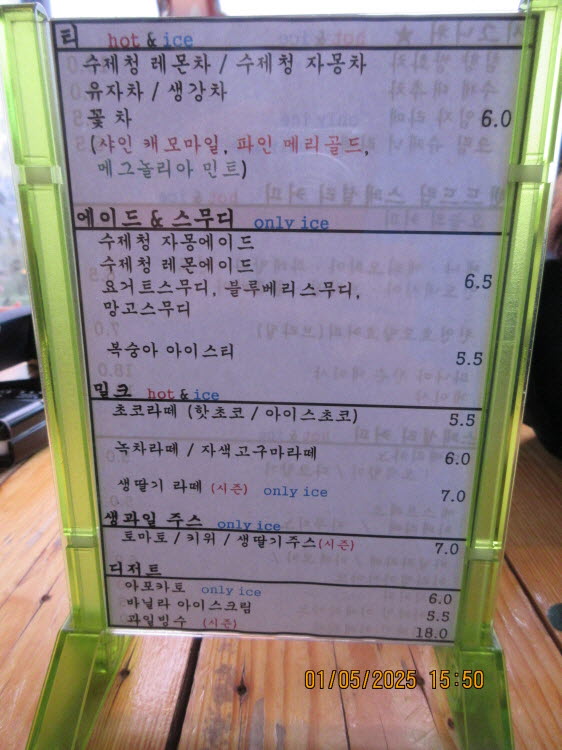 티 hot & ice
수제청 레몬차 / 수제청 자몽차
유자차 / 생강차
꽃 차 6.0
(샤인 캐모마일, 파인 메리골드,
메그놀리아 민트)
에이드 & 스무디 only ice
수제청 자몽에이드
수제청 레몬에이드
요거트스무디, 블루베리스무디, 6.5
망고스무디
복숭아 아이스티 5.5
밀크 hot & ice
초코라떼 (핫초코 / 아이스초코) 5.5
녹차라떼 / 자색고구마라떼 6.0
생딸기 라떼 (시즌) only ice 7.0
생과일 주스 only ice
토마토 / 키위 / 생딸기주스(시즌) 7.0
디저트
아포카토 only ice 6.0
바닐라 아이스크림 5.5
과일빙수 (시즌) 18.0
01/05/2025 15:50